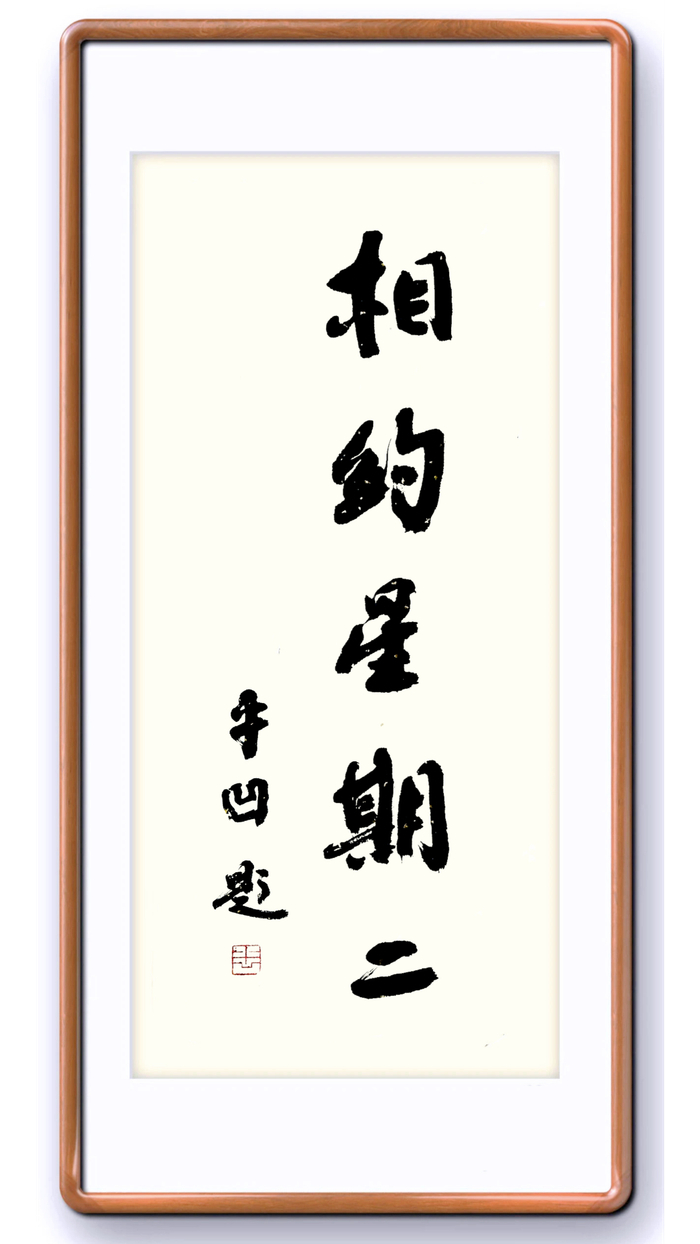 相约星期二
平凹题